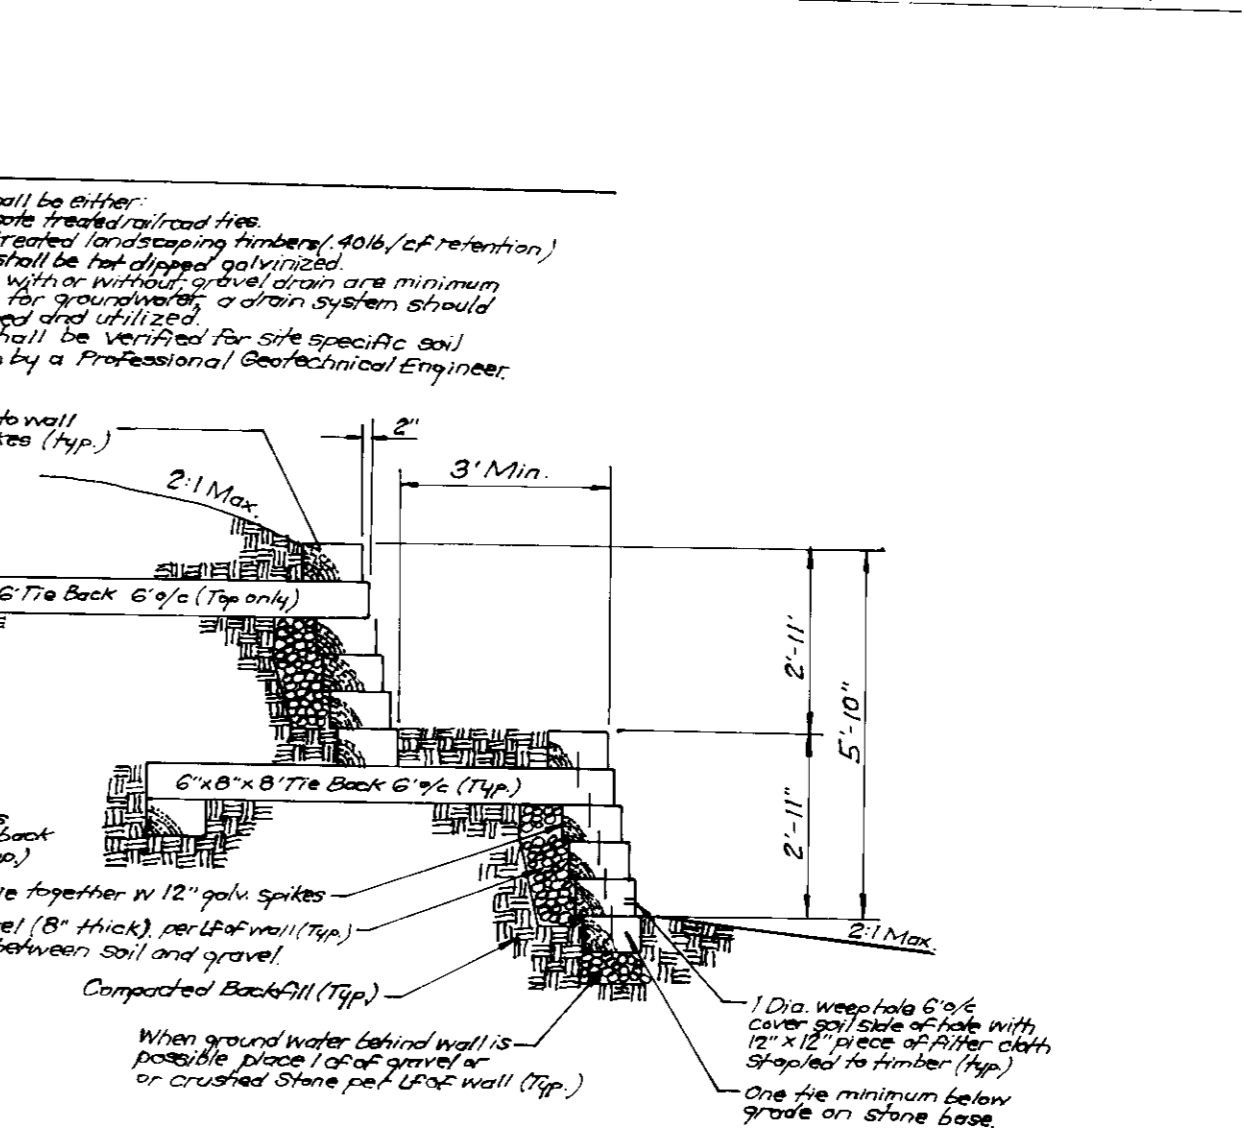 all be either:
ote treated railroad ties.
treated landscaping timbers (.40lb./cf retention)
shall be hot dipped galvinized.
with or without gravel drain are minimum
for groundwater, a drain system should
ed and utilized.
hall be verified for site specific soil
by a Professional Geotechnical Engineer.
to wall
kes (typ.)
2"
3' Min.
2:1 Max.
6' Tie Back 6' o/c (Top only)
2'-11'
5'-10"
6"x8"x8' Tie Back 6' o/c (Typ.)
2'-11"
s
back
p.)
e together w 12" galv. spikes
el (8" thick). per LF of wall (Typ.)
between soil and gravel.
2:1 Max.
Compacted Backfill (Typ.)
When ground water behind wall is
possible place 1 cf of gravel or
or crushed Stone per LF of wall (Typ.)
1 Dia. weephole 6' o/c
cover soil side of hole with
12" x 12" piece of filter cloth
Stapled to timber (typ.)
One tie minimum below
grade on stone base.